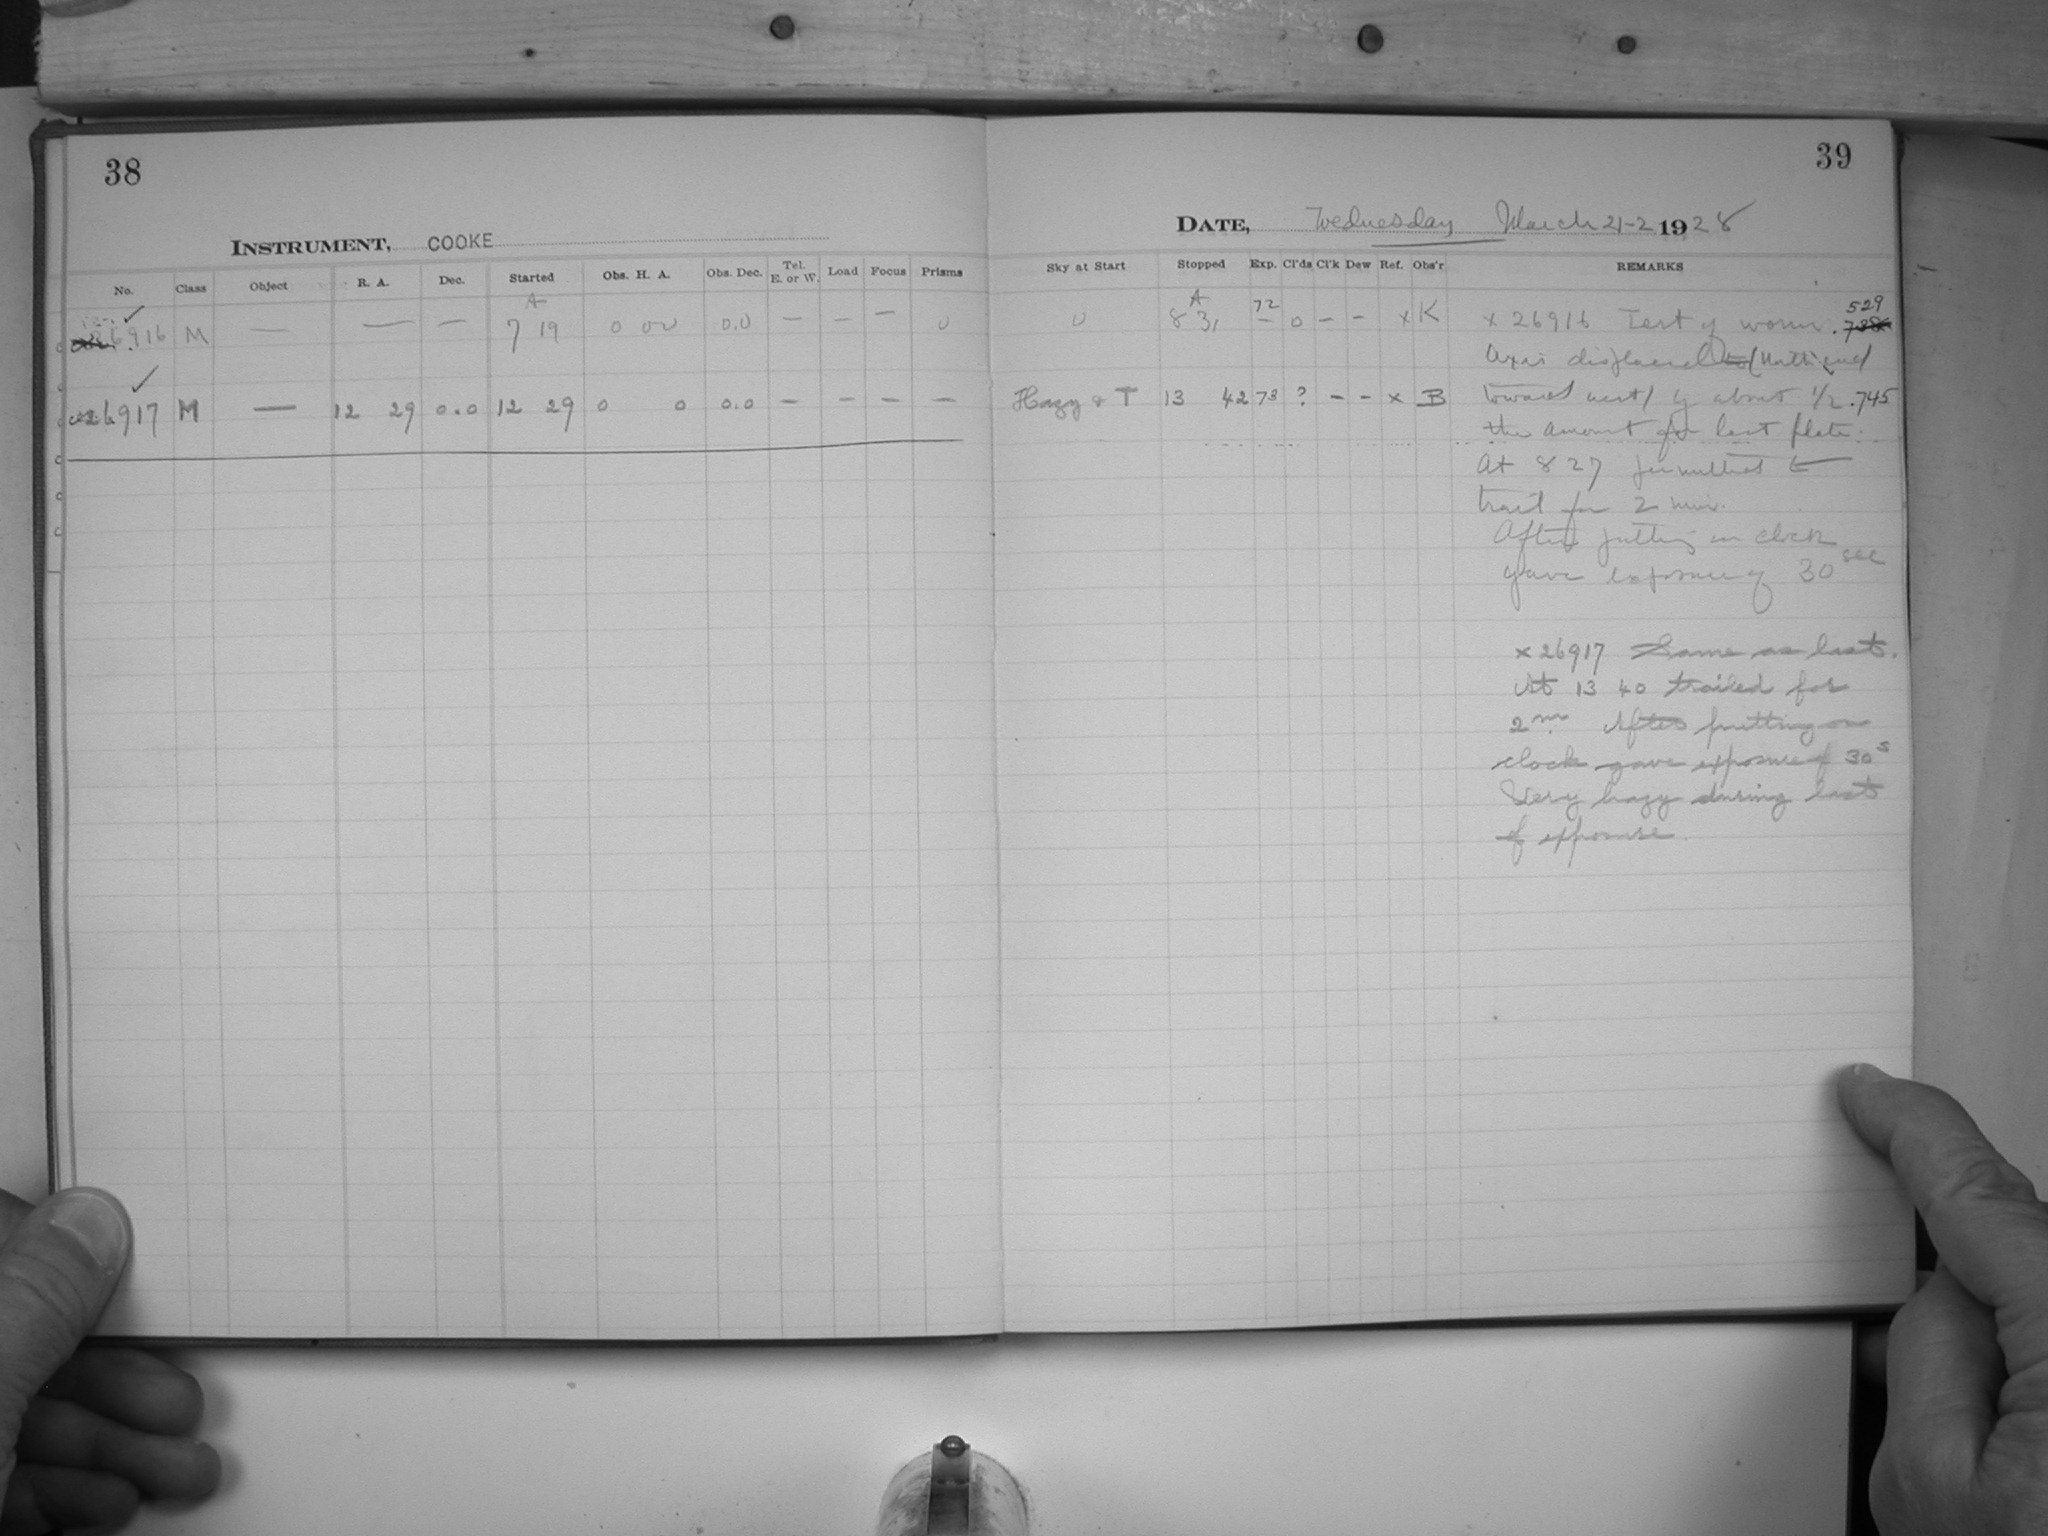 38
INSTRUMENT, COOKE
No. Class Object R. A. Dec. Started Obs. H. A. Obs. Dec. Tel. E. or W. Load Focus Prisms
26916 M — — — 7 19 0 00 0.0 — — — 0
26917 M — 12 29 0.0 12 29 0 0 0.0 — — — —
39
DATE, Wednesday March 21-2 1928
Sky at Start Stopped Exp. Cl'ds Cl'k Dew Ref. Obs'r REMARKS
0 8 31 72 0 — — x K x 26916 Test of worm . 529
Axis displaced
Hazy & T 13 42 73 ? — — x B toward west by about 1/2 .745
the amount for last plate.
At 8 27 permitted to
trail for 2 min.
After putting on clock
gave exposure of 30 sec
x 26917 Same as last.
At 13 40 trailed for
2m. After putting on
clock gave exposure of 30s
Very hazy during last
of exposure.